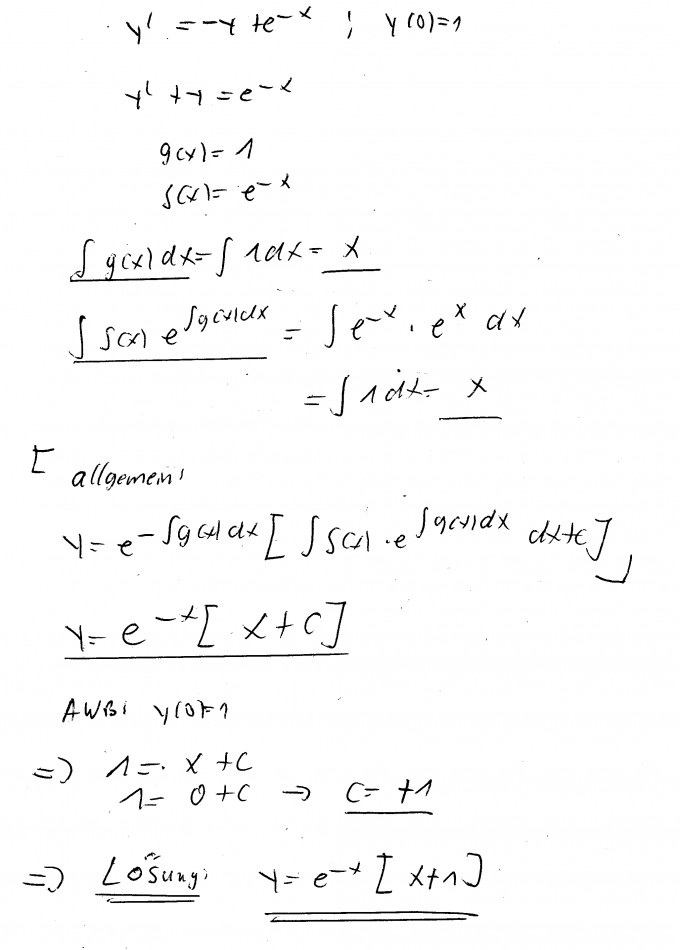 y' = -y + e^-x ; y(0)=1
y' + y = e^-x
g(x) = 1
s(x) = e^-x
∫ g(x) dx = ∫ 1 dx = x
∫ s(x) e^∫g(x)dx = ∫ e^-x · e^x dx
= ∫ 1 dx = x
[ allgemein:
y = e^-∫g(x)dx [ ∫ s(x) · e^∫g(x)dx dx + c ] ]
y = e^-x [ x + c ]
AWB: y(0)=1
=> 1 = x + c
1 = 0 + c → c = +1
=> Lösung: y = e^-x [ x+1 ]